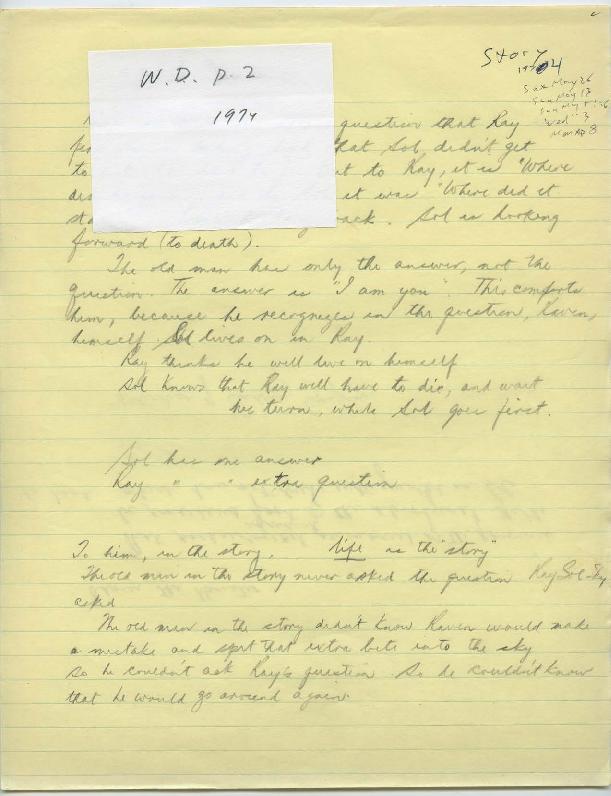 W. D. p. 2
1974
Story
question that Ray
that Sol, didn't get
to Ray, it is "Where
it was "Where did it
back. Sol is looking
forward (to death).
The old man has only the answer, not the
question. The answer is "I am you". This comforts
him, because he recognizes in the question, Raven,
himself. Sol lives on in Ray.
Ray thinks he will live on himself
Sol knows that Ray will have to die, and wait
his turn, while Sol goes first.
Sol has one answer
Ray " " extra question
To him, in the story. Life is the "story"
The old men in the story never asked the question Ray
asked
The old men in the story didn't know Raven would make
a mistake and spit that extra bite into the sky
so he couldn't ask Ray's question. So he couldn't know
that he would go around again